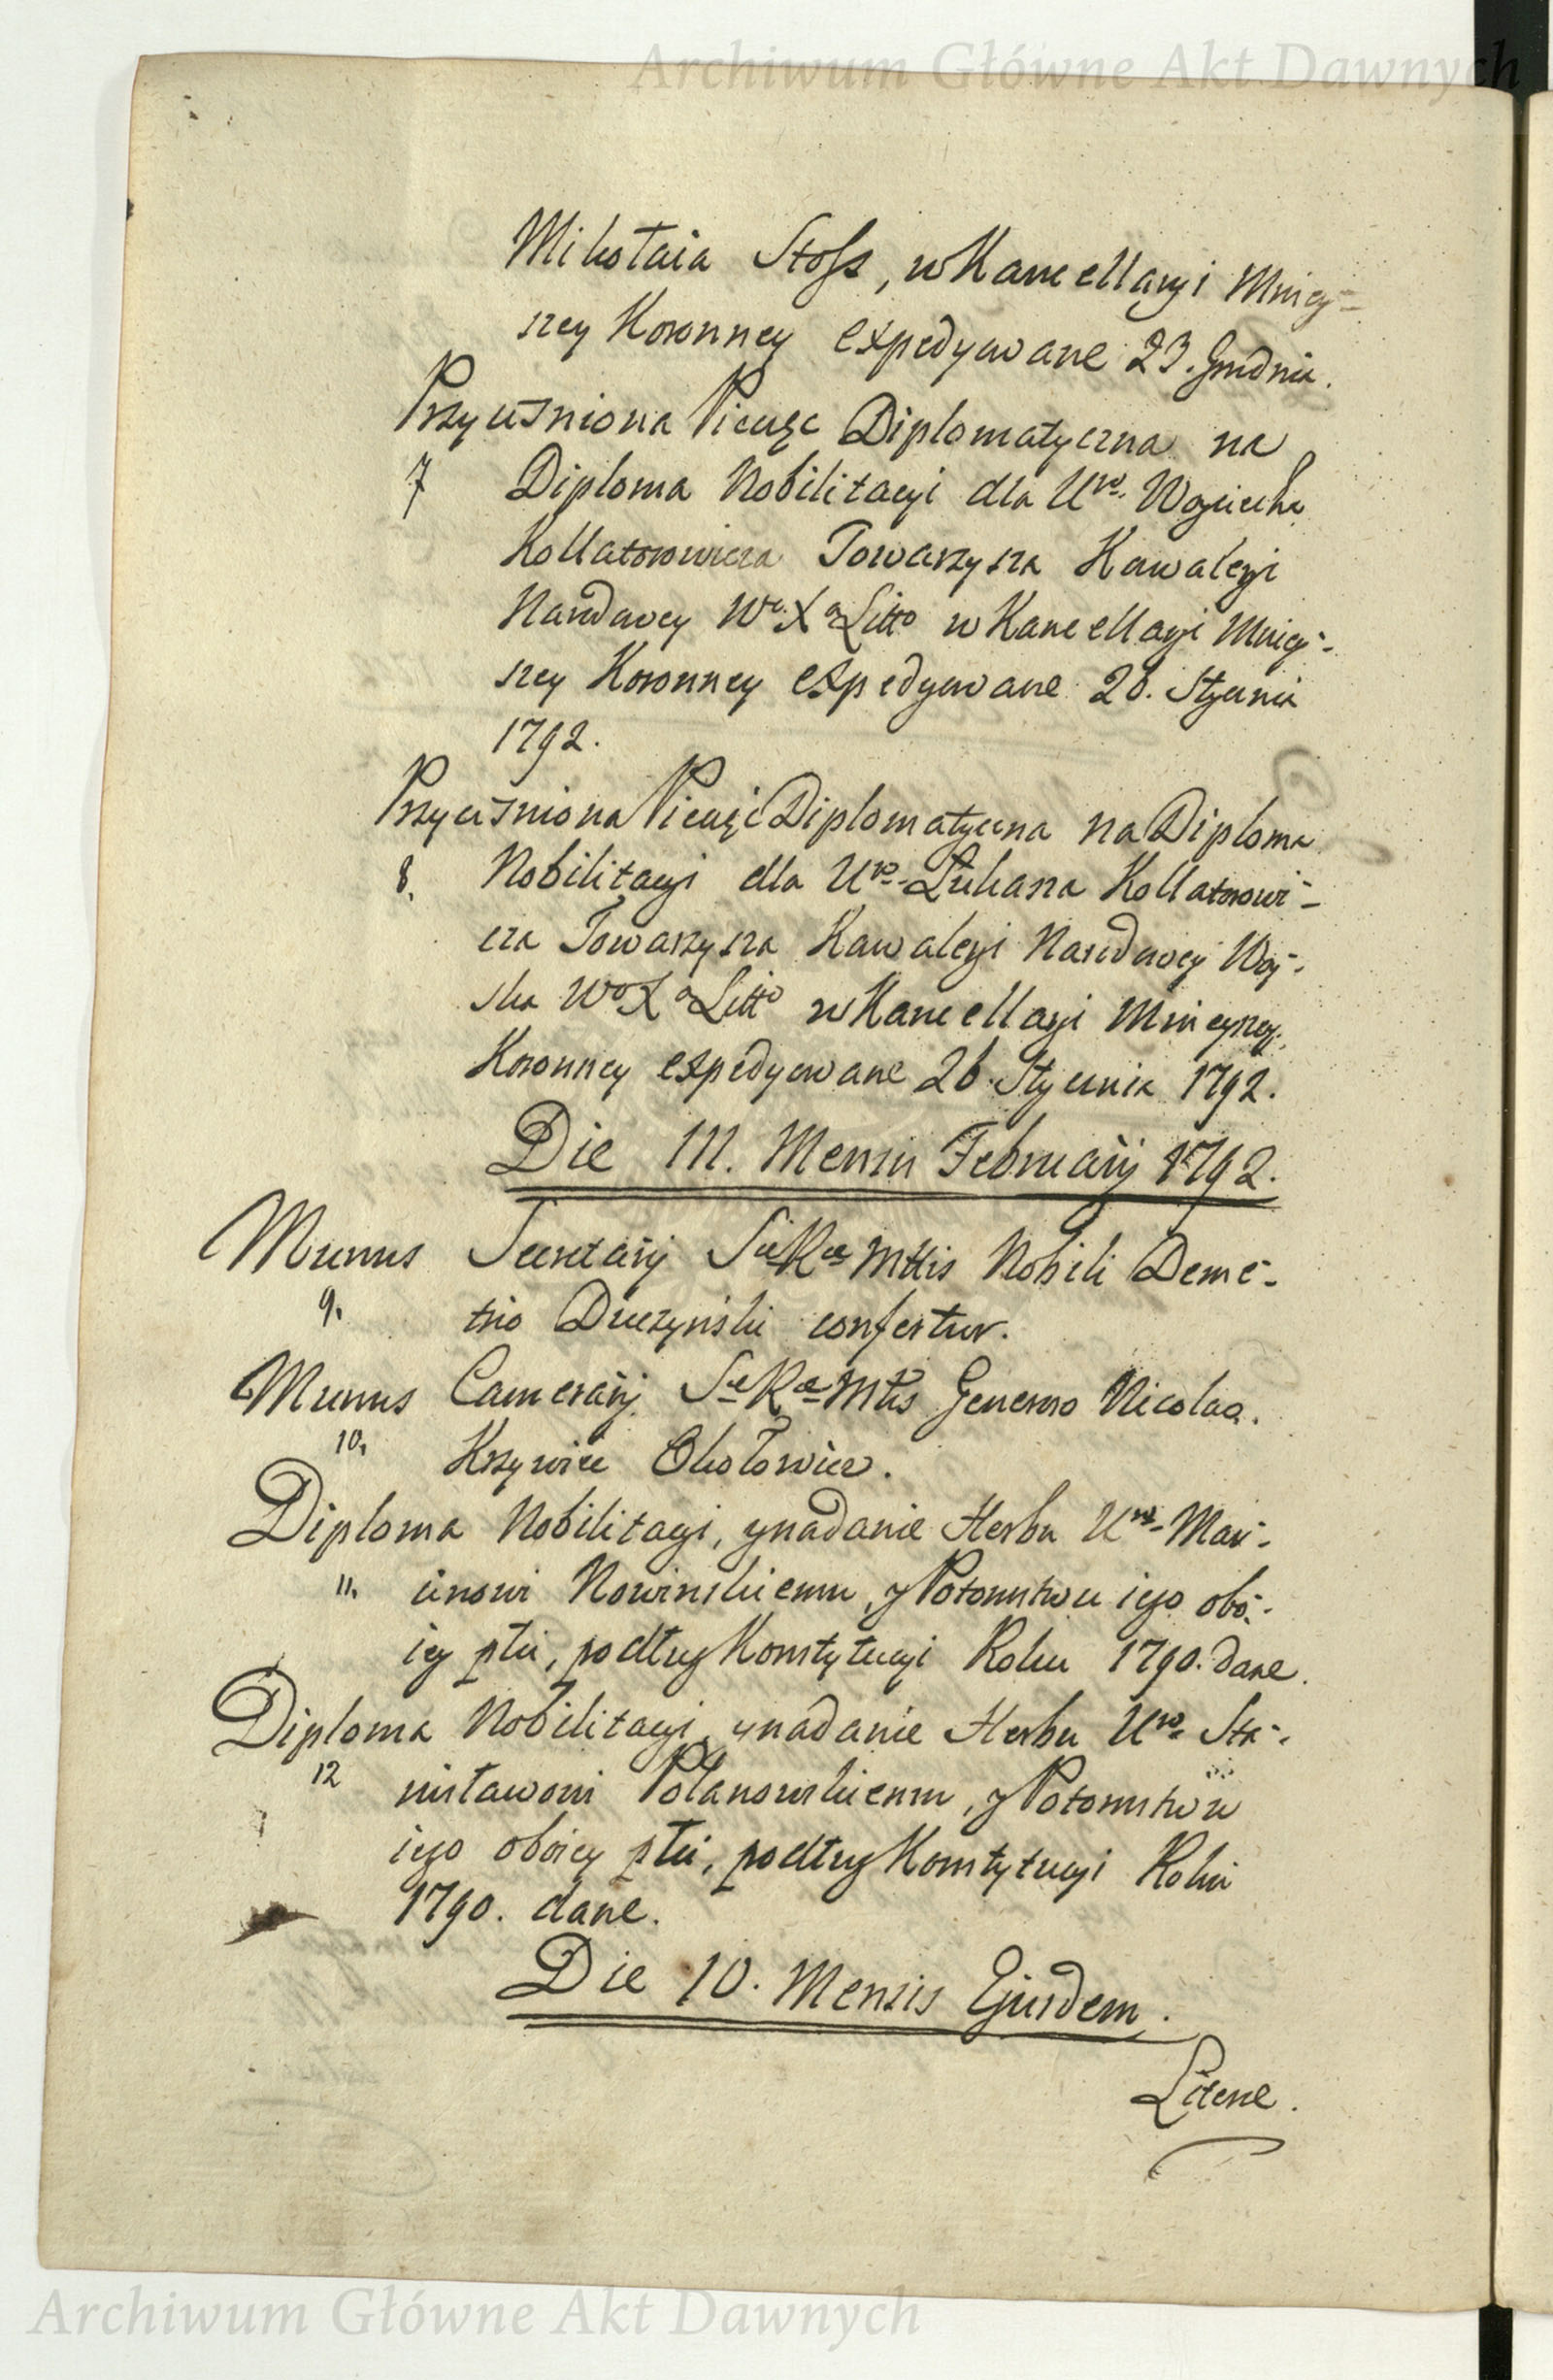 Archiwum Główne Akt Dawnych
Mikołaia Stoss, w Kancellaryi Mniey-
szey Koronney expedyowane 23. Grudnia.
Przyciśniona Pieczęc Diplomatyczna na
7 Diploma Nobilitacyi dla Uro. Woyciecha
Kollatorowicza Towarzysza Kawaleryi
Narodowey Wo. Xa Litto w Kancellaryi Mniey-
szey Koronney expedyowane 26. Stycznia
1792.
Przyciśniona Pieczęć Diplomatyczna na Diploma
8. Nobilitacyi dla Uro. Łukasza Kollatorowi-
cza Towarzysza Kawaleryi Narodowey Woy-
ska Wo X a Litto w Kancellaryi Mnieyszey
Koronney expedyowane 26. Stycznia 1792.
Die 111. Mensis Februarij 1792.
Munus Secretarij Sae Rae Mttis Nobili Deme-
9. trio Duczyński confertur.
Munus Camerarij Sae Rae Mtis Generoso Nicolao
10. Krzywiec Okołowicz.
Diploma Nobilitacyi, y nadanie Herbu Uro. Mar-
11. cinowi Nowinskiemu, y Potomstwu iego obo-
iey płci, podług Konstytucyi Roku 1790. dane.
Diploma Nobilitacyi, y nadanie Herbu Uro. Sta-
12 nisławowi Polanowskiemu, y Potomstwu
iego oboiey płci, podług Konstytucyi Roku
1790. dane.
Die 10. Mensis Ejusdem.
Literae.
Archiwum Główne Akt Dawnych